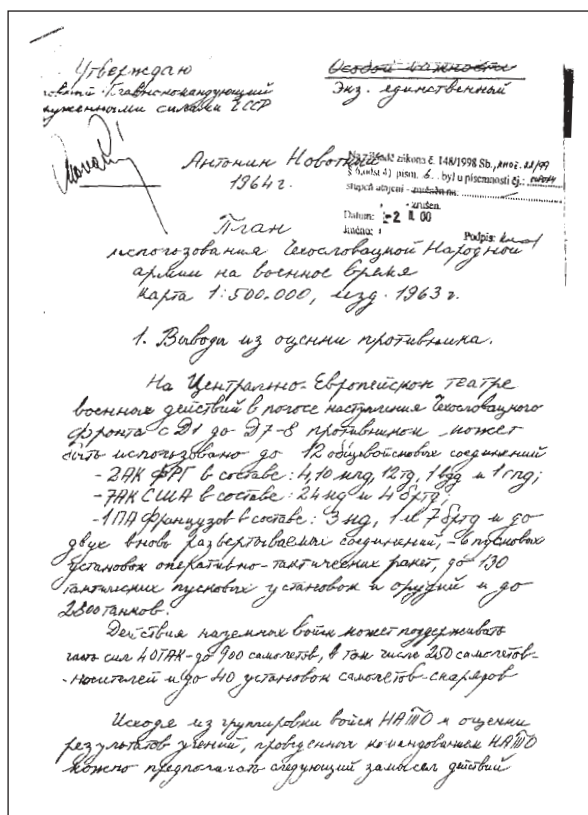 Утверждаю
Особой важности
Экз. единственный
Главнокомандующий
силами ЧССР
Антонин Новотный
1964 г.
Na základě zákona č. 148/1998 Sb.,
písm. 6. byl u písemnosti čj.:
stupeň utajení
- zrušen.
Datum: -2 00
Jméno:
Podpis:
План
использования Чехословацкой Народной
армии на военное время
Карта 1:500.000, изд. 1963 г.
1. Выводы из оценки противника.
На Центрально-Европейском театре
военных действий в полосе наступления Чехословацкого
фронта с Д1 до Д7-8 противником может
быть использовано до 12 общевойсковых соединений
- 2АК ФРГ в составе: 4,10 мпд, 12тд, 1 вдд и 1 гпд;
- 7АК США в составе: 24 мд и 4 бртд;
- 1ПА Французов в составе: 3 мд, 1 и 7 бртд и до
двух вновь развертываемых соединений, - 6 пусковых
установок оперативно-тактических ракет, до 130
тактических пусковых установок и орудий и до
2800 танков.
Действия наземных войск может поддерживать
часть сил 4 ОТАК - до 900 самолетов, в том числе 250 самолетов-
-носителей и до 40 установок самолетов-снарядов
Исходя из группировки войск НАТО и оценки
результатов учений, проведенных командованием НАТО
можно предполагать следующий замысел действий